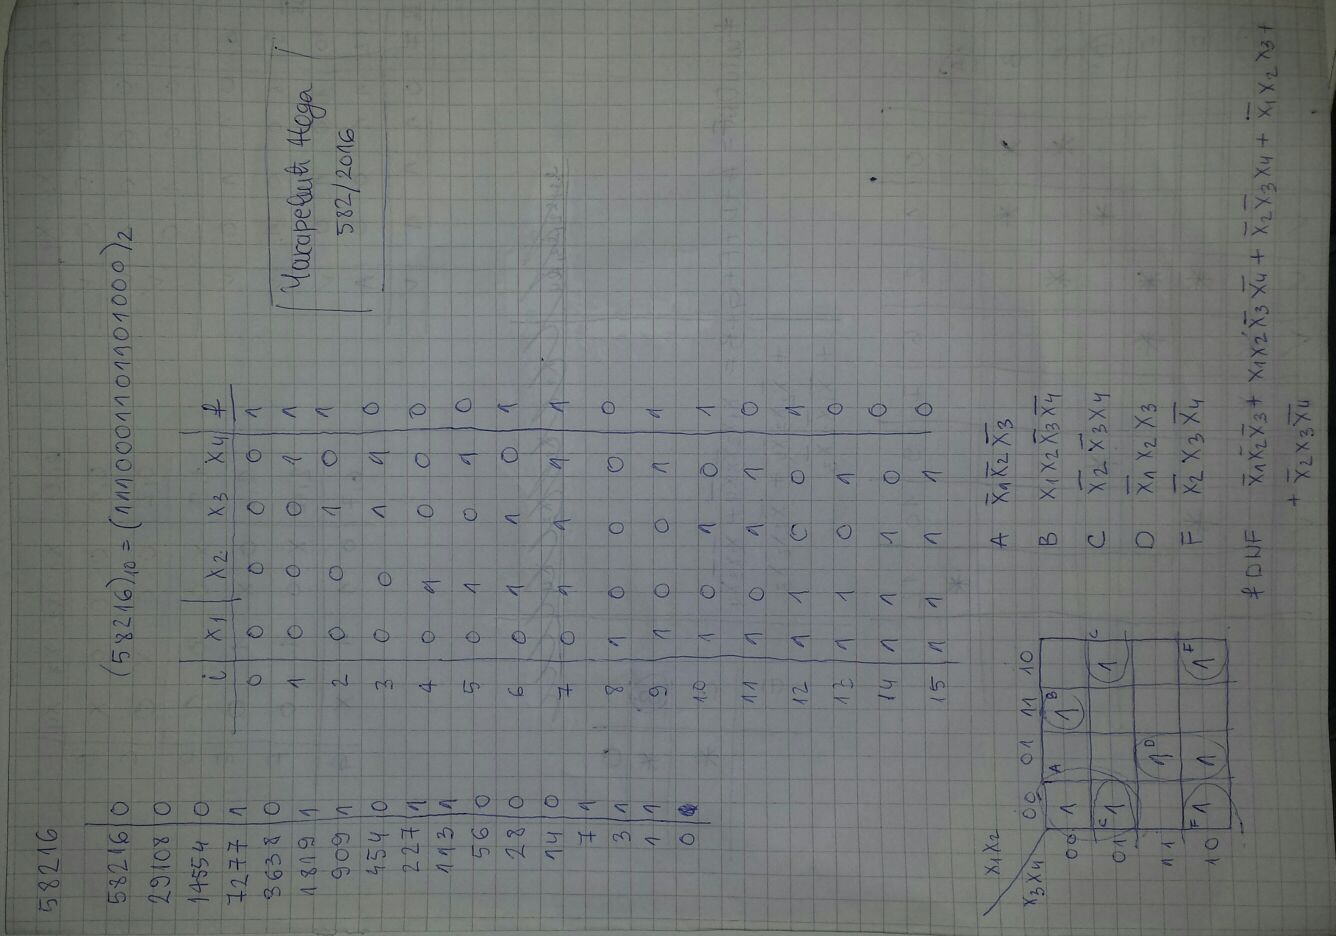 58216
58216 0
29108 0
14554 0
7277 1
3638 0
1819 1
909 1
454 0
227 1
113 1
56 0
28 0
14 0
7 1
3 1
1 1
0
(58216)10 = (1110001101101000)2
Чакаревић
582/2016
i x1 x2 x3 x4 f
0 0 0 0 0 1
1 0 0 0 1 1
2 0 0 1 0 1
3 0 0 1 1 0
4 0 1 0 0 0
5 0 1 0 1 0
6 0 1 1 0 1
7 0 1 1 1 1
8 1 0 0 0 0
9 1 0 0 1 1
10 1 0 1 0 1
11 1 0 1 1 0
12 1 1 0 0 1
13 1 1 0 1 0
14 1 1 1 0 0
15 1 1 1 1 0
x1x2
x3x4 00 01 11 10
00 1 A 1 B
01 C 1 1 C
11 1 D
10 F 1 1 1 F
A x̄1x̄2x̄3
B x1x2x̄3x̄4
C x̄2x̄3x4
D x̄1x2x3
F x̄2x3x̄4
f DNF x̄1x̄2x̄3 + x1x2x̄3x̄4 + x̄2x̄3x4 + x̄1x2x3 +
+ x̄2x3x̄4